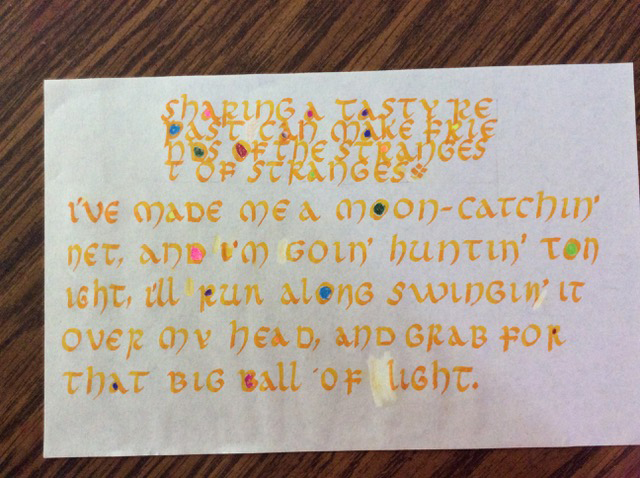 Sharing a tasty re
past can make frie
nds of the stranges
t of stranges
I've made me a moon-catchin'
net, and I'm goin' huntin' ton
ight, I'll run along swingin' it
over my head, and grab for
that big ball of light.